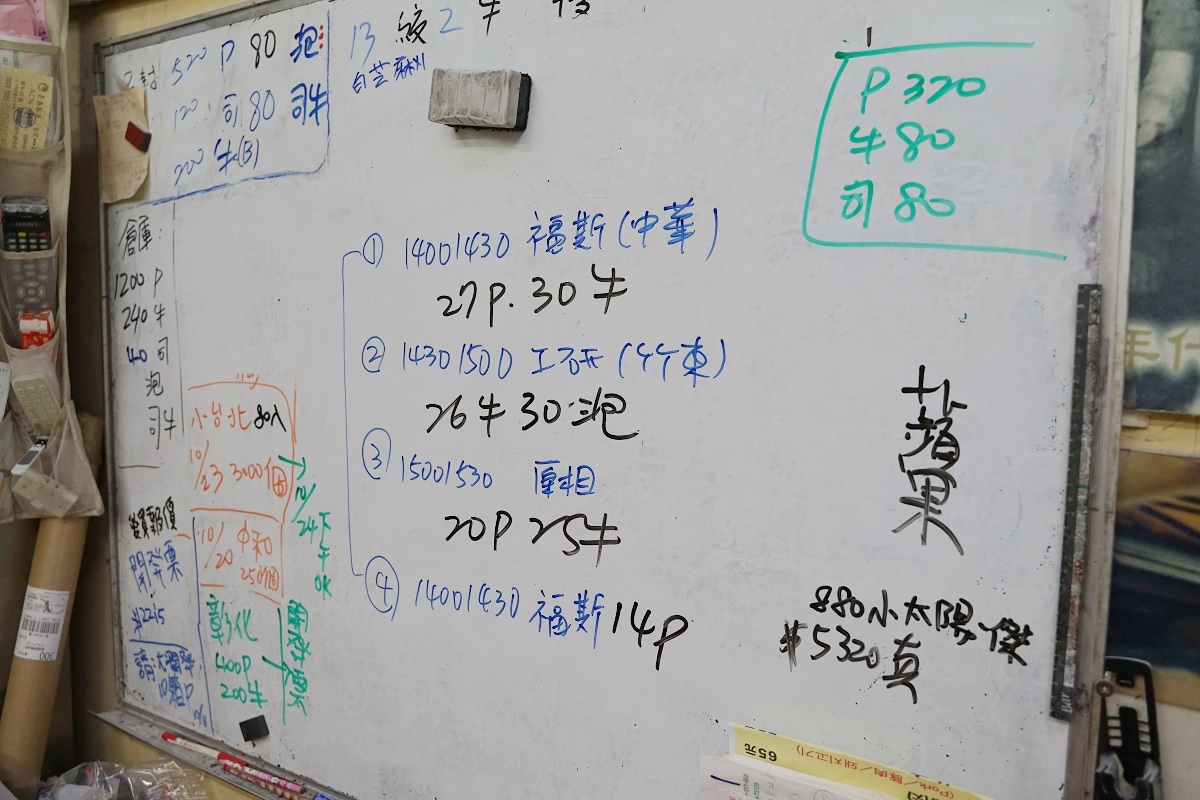 520 P 80 泡
120 司 80 司牛
200 牛(B)
13 絞 2 牛
白芝麻
P 320
牛 80
司 80
倉庫:
1200 P
240 牛
40 司
泡
司牛
① 14001430 福斯(中華)
27P. 30牛
② 14301500 工研(竹東)
26牛 30泡
③ 15001530 厚相
20P 25牛
④ 14001430 福斯 14P
小台北 80入
10/23 3000個
10/24下午OK
10/20 中和
250個
彰化
400P
200牛
開發票
報價
開發票
$2215
蘋果
880小太陽.傑
$5320真
65元
(Pork / 豚肉 / 돼지고기)